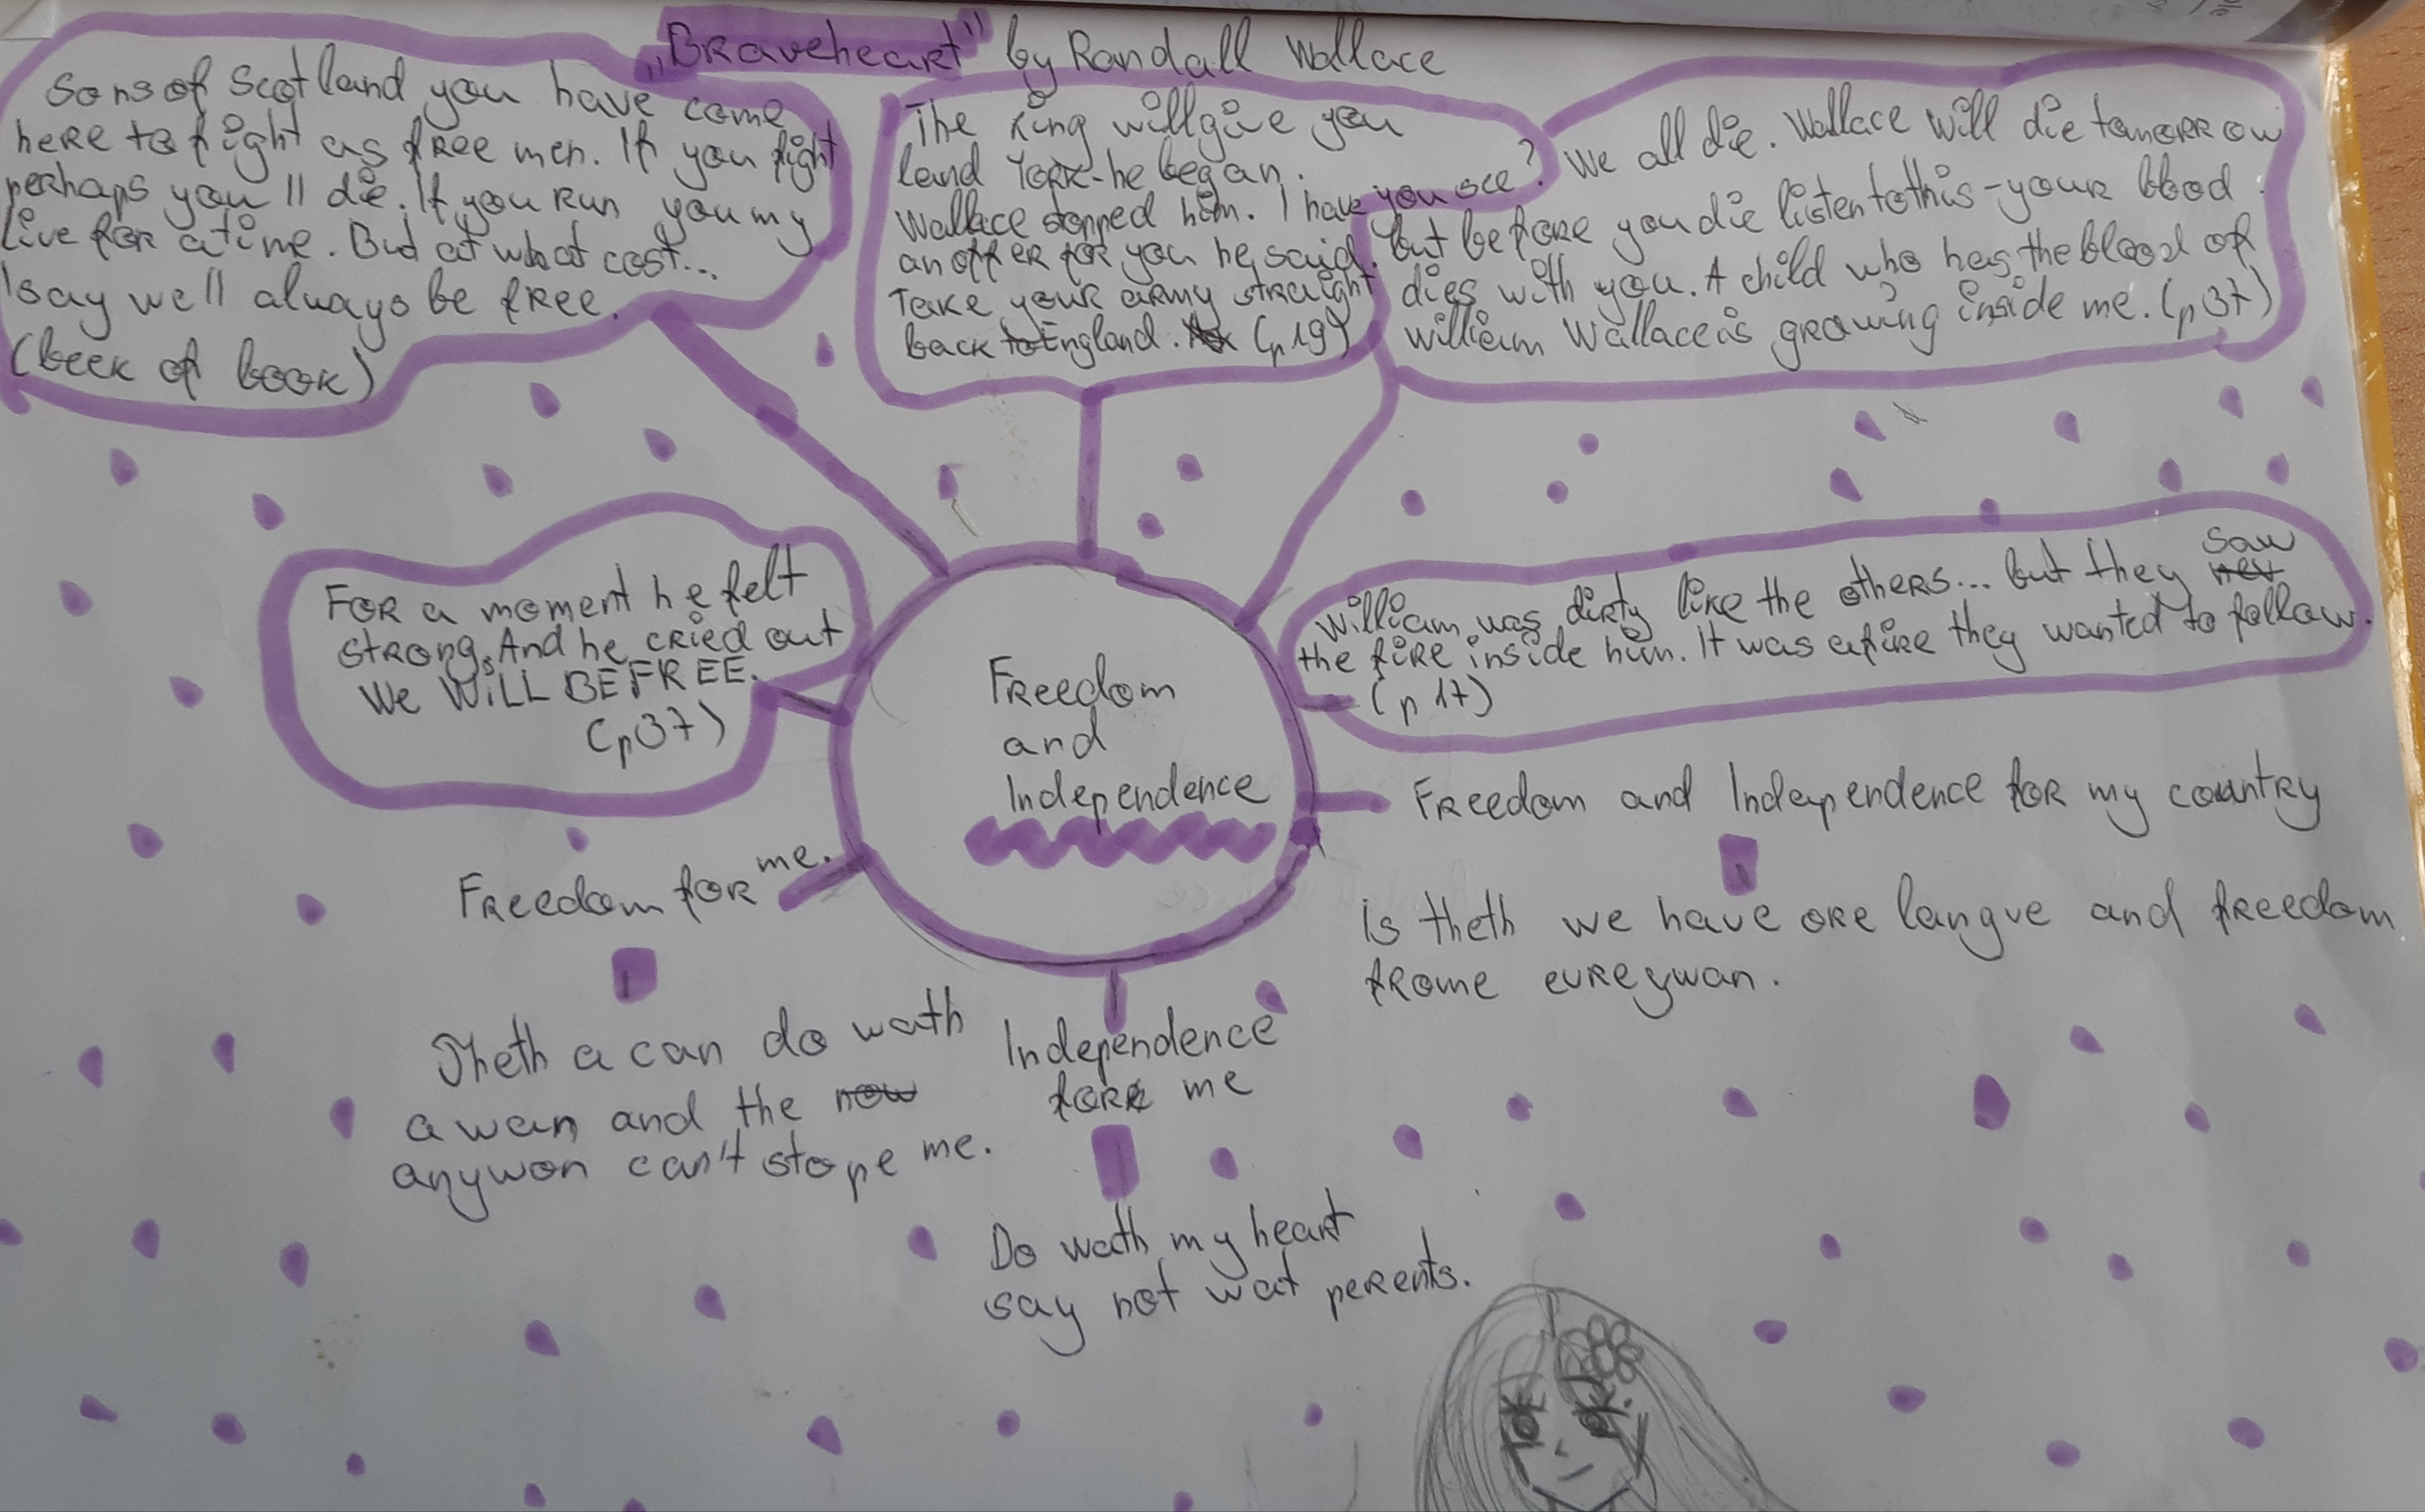 „Braveheart" by Randall Wallace
Sons of Scotland you have come
here to fight as free men. If you fight
perhaps you'll die. If you run you my
live for a time. But at what cost...
I say we'll always be free.
(beek of book)
The king will give you
land York-he began.
Wallace stopped him. I have
an offer for you he said.
Take your army straight
back to England. (p 19)
you see? We all die. Wallace will die tomorrow
but before you die listen to this - your blood
dies with you. A child who has the blood of
william Wallace is growing inside me. (p 37)
For a moment he felt
strong. And he cried out
We WILL BE FREE.
(p 37)
William was dirty like the others... but they saw
the fire inside him. It was a fire they wanted to follow.
(p 17)
Freedom
and
Independence
Freedom and Independence for my country
is theth we have ore langve and freedom
frome evreywan.
Freedom for me.
Theth a can do wath
a wan and the now
anywon can't stope me.
Independence
for me
Do wath my heart
say not wat perents.